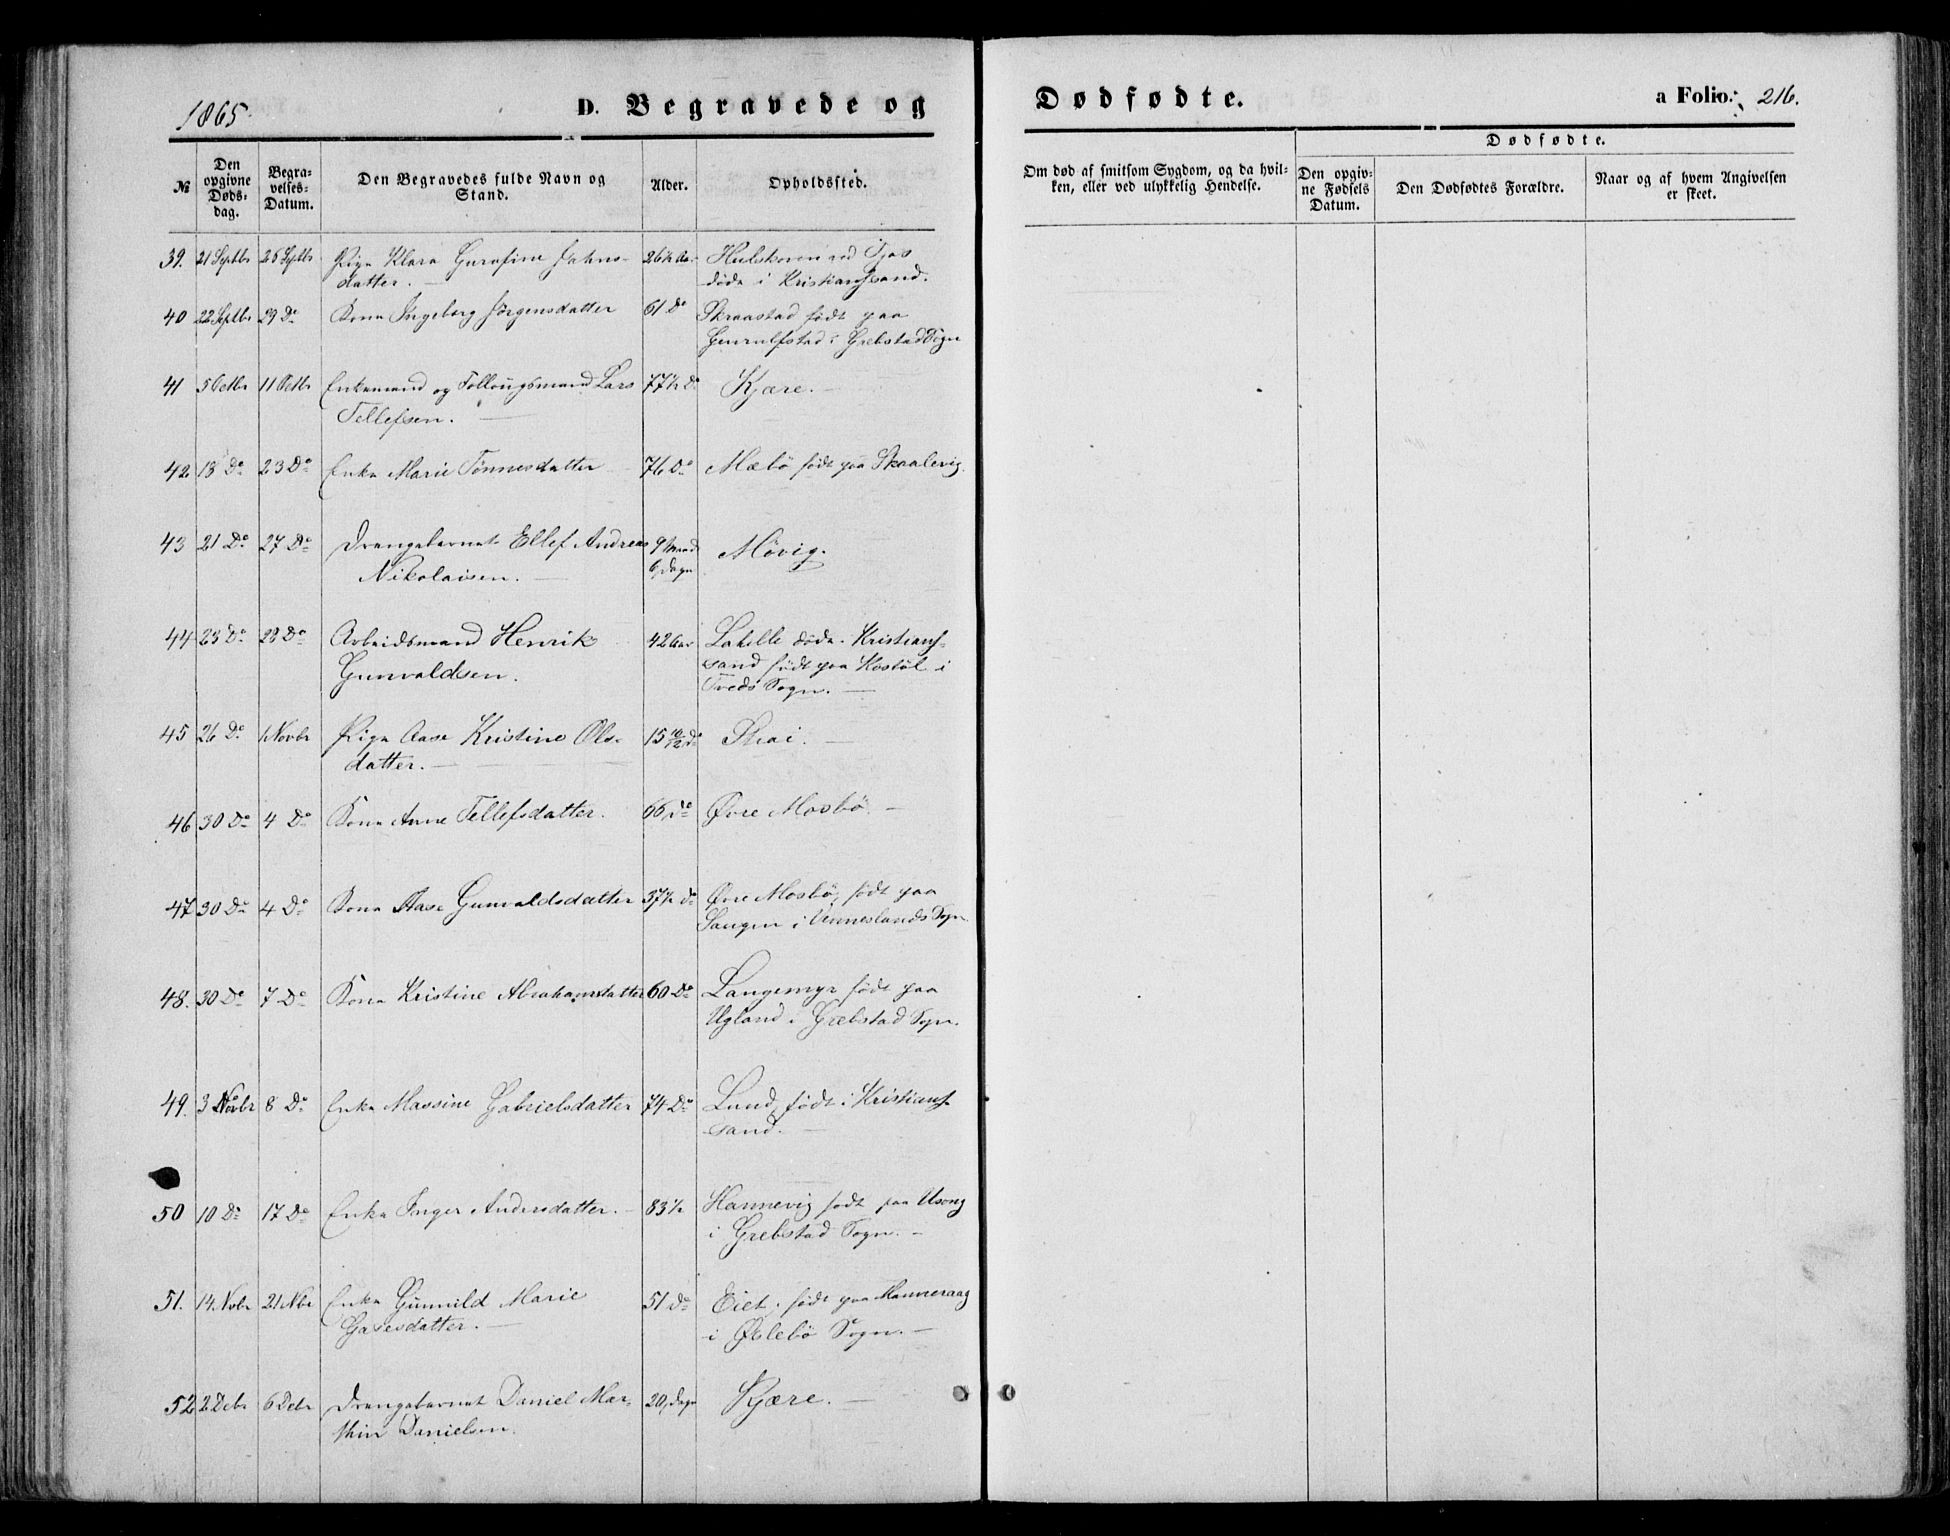 1865.
D. Begravede og
Dødfødte.
a Folio: 216.
№
Den opgivne Døds-dag.
Begra-velses-Datum.
Den Begravedes fulde Navn og Stand.
Alder.
Opholdssted.
Om død af smitsom Sygdom, og da hvil-ken, eller ved ulykkelig Hendelse.
Dødfødte.
Den opgiv-ne Fødsels Datum.
Den Dødfødtes Forældre.
Naar og af hvem Angivelsen er skeet.
39. 21 Septbr 26 Septbr Pige Klara Gurofine Jahns- 26½ Aar
datter. døde i Kristianssand.
40 22 Septbr 29 Do Kone Ingeborg Jörgensdatter 61 Do Skraastad født paa
i Grebstad Sogn
41 5 Octbr 11 Octbr Enkemand og Follougsmand Lars 77½ Do Kjære.
Tellefsen.
42 18 Do 23 Do Enke Marie Tönnesdatter 76 Do Mæbö født paa Skaalevig.
43 21 Do 27 Do Drengebarnet Ellef Andreas 9 Maand Mövig.
Nikolaisen. 6 Dage
44 23 Do 28 Do Arbeidsmand Henrik 42 Aar døde i Kristians-
Gunvaldsen. sand født paa Kostöl i
Tveds Sogn.
45 26 Do 1 Novbr Pige Aase Kristine Ols- 15 10/12 Do Strai.
datter.
46 30 Do 4 Do Kone Anne Tellefsdatter. 66 Do Øvre Mosbö
47 30 Do 4 Do Kone Aase Gunvaldsdatter 37½ Do Øvre Mosbö, født paa
i Venneslands Sogn
48. 30 Do 7 Do Kone Kristine Abrahamsdatter 60 Do Langemyr født paa
Ugland i Grebstad Sogn.
49. 3 Novbr 8 Do Enke Massine Gabrielsdatter 74 Do Lund, født i Kristians-
sand.
50 10 Do 17 Do Enke Inger Andersdatter. 83½ Hannevig født paa Usong
i Grebstad Sogn.
51. 14. Nvbr 21 Nbr Enke Gunnild Marie 51 Do Eiet, født paa Manneraag
Gasesdatter. i Øslebö Sogn.
52 2 Debr 6 Debr Drengebarnet Daniel Mar- 20, Dage Kjære.
thin Danielsen.